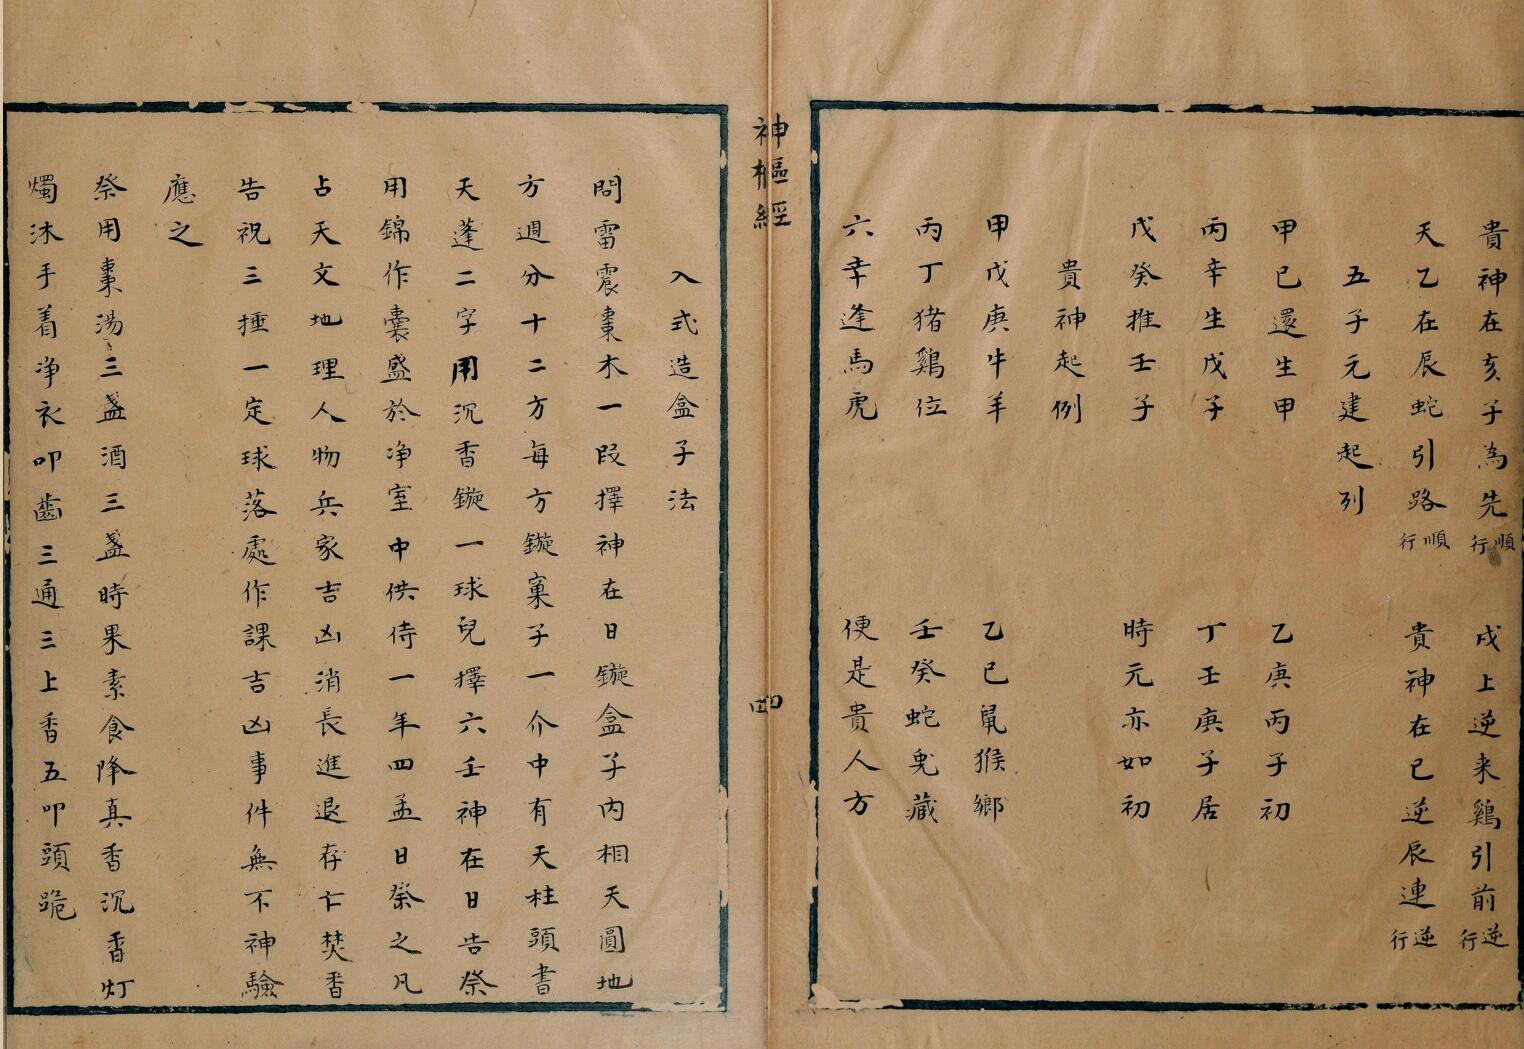 貴神在亥子為先順行　戌上逆来鷄引前逆行
天乙在辰蛇引路順行　貴神在巳逆辰連逆行
五子元建起列
甲已還生甲　乙庚丙子初
丙辛生戊子　丁壬庚子居
戊癸推壬子　時元亦如初
貴神起例
甲戊庚牛羊　乙已鼠猴鄉
丙丁猪鷄位　壬癸蛇兎藏
六辛逢馬虎　便是貴人方
神樞經
四
入式造盒子法
問雷震棗木一段擇神在日鏇盒子内相天圓地
方週分十二方每方鏇菓子一介中有天柱頭書
天蓬二字用沉香鏇一球兒擇六壬神在日告祭
用錦作囊盛於净室中供侍一年四孟日祭之凡
占天文地理人物兵家吉凶消長進退存亡焚香
告祝三捶一定球落處作課吉凶事件無不神驗
應之
祭用棗湯三盞酒三盞時果素食降真香沉香灯
燭沐手着净衣叩齒三通三上香五叩頭跪